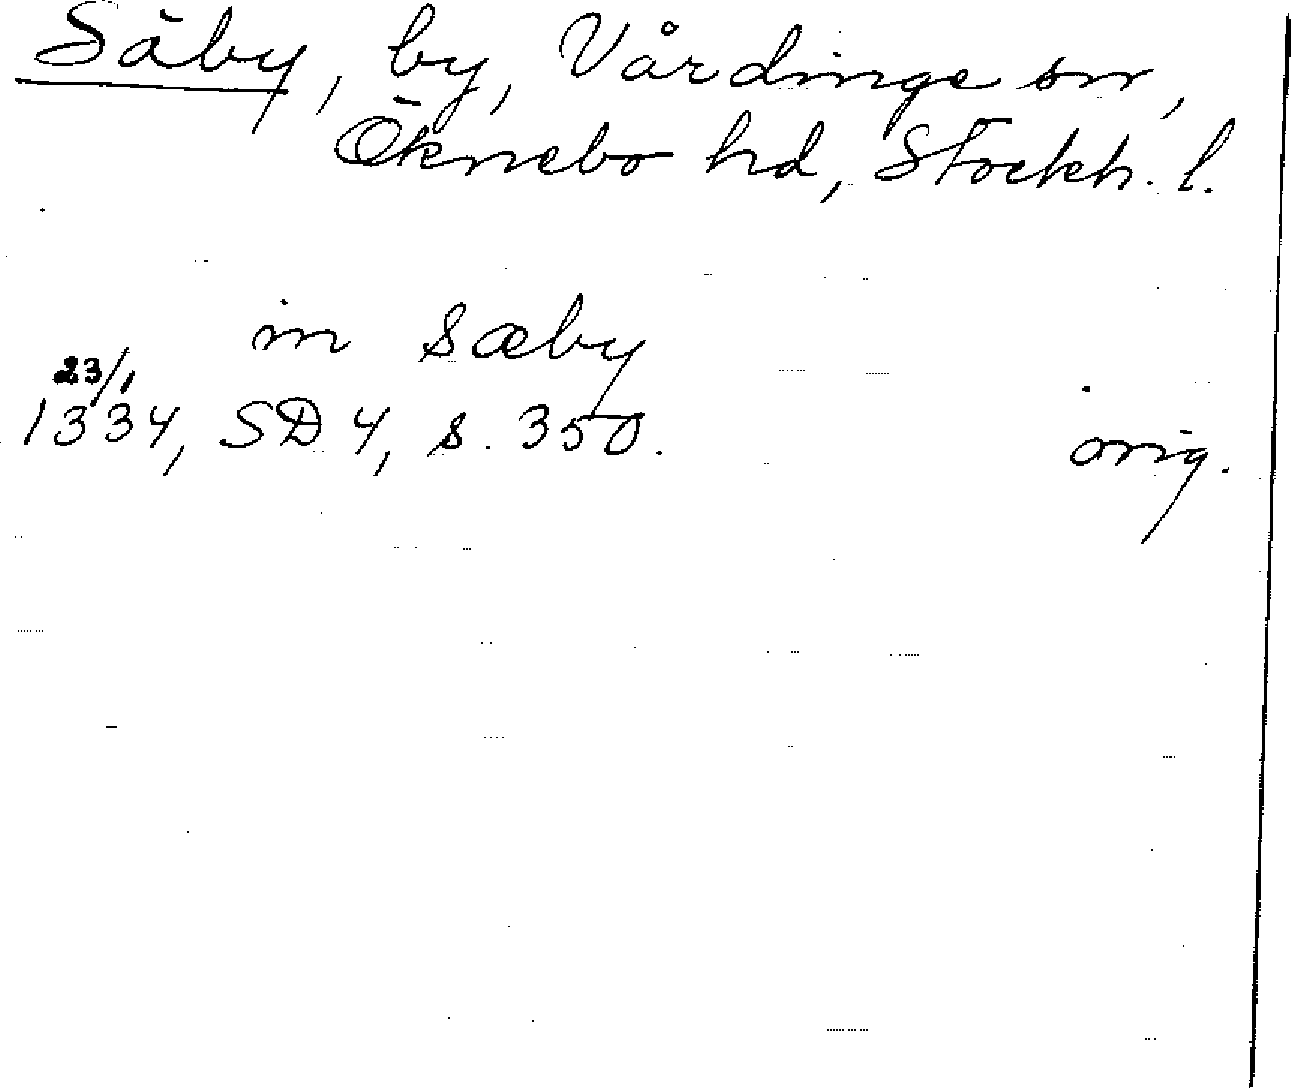 Säby, by, Vårdinge sn,
Öknebo hd, Stockh. l.
in Sæby
23/1
1334, SD 4, s. 350.
orig.